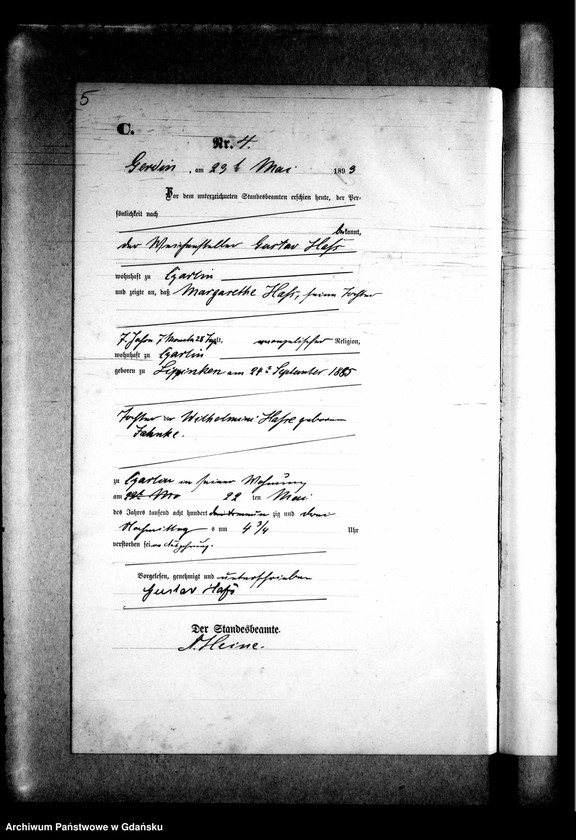 5
C.
Nr. 4.
Gerdin, am 23t Mai 1893
Vor dem unterzeichneten Standesbeamten erschien heute, der Per-
sönlichkeit nach
bekannt,
der Weichensteller Gustav Hass
wohnhaft zu Czarlin
und zeigte an, daß Margarethe Hass, seine Tochter
7 Jahre 7 Monate 28 evangelischer Religion,
wohnhaft zu Czarlin
geboren zu Lippinken am 24t September 1885
Tochter der Wilhelmine Hasse geborene
Jahnke.
zu Czarlin in seiner Wohnung
am 22 ten Mai
des Jahres tausend acht hundert zig und drei
Nachmittag s um 4 3/4 Uhr
verstorben sei
Vorgelesen, genehmigt und unterschrieben
Gustav Hass
Der Standesbeamte.
Heine.
Archiwum Państwowe w Gdańsku